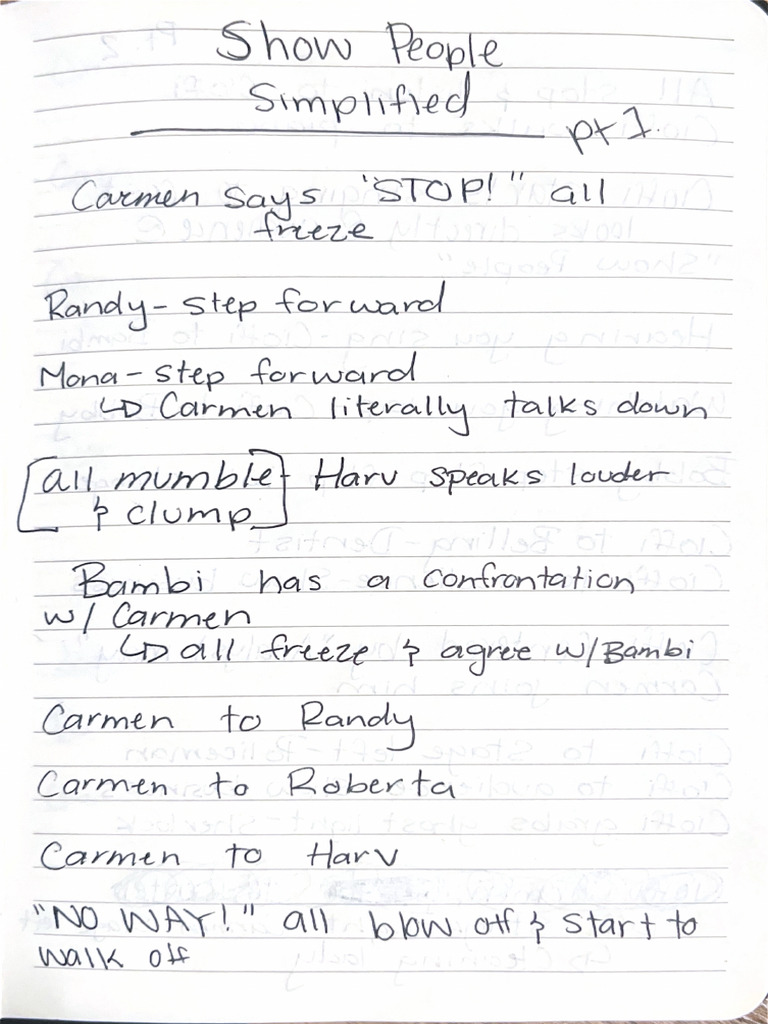 Show People
Simplified
pt 1.
Carmen says "STOP!" all
freeze
Randy - step forward
Mona - step forward
↳ Carmen literally talks down
[all mumble - Harv speaks louder
& clump]
Bambi has a confrontation
w/ Carmen
↳ all freeze & agree w/ Bambi
Carmen to Randy
Carmen to Roberta
Carmen to Harv
"NO WAY!" all blow off & start to
walk off